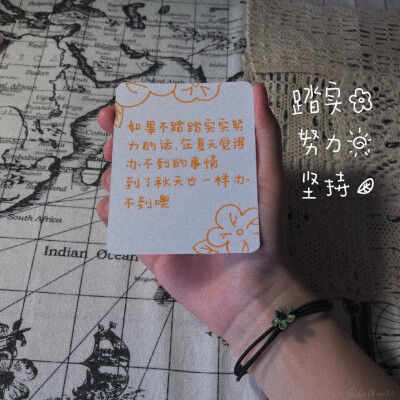 如果不踏踏实实努
力的话,在夏天觉得
办不到的事情
到了秋天也一样办
不到噢
踏实
努力
坚持
South Africa
Indian Ocean